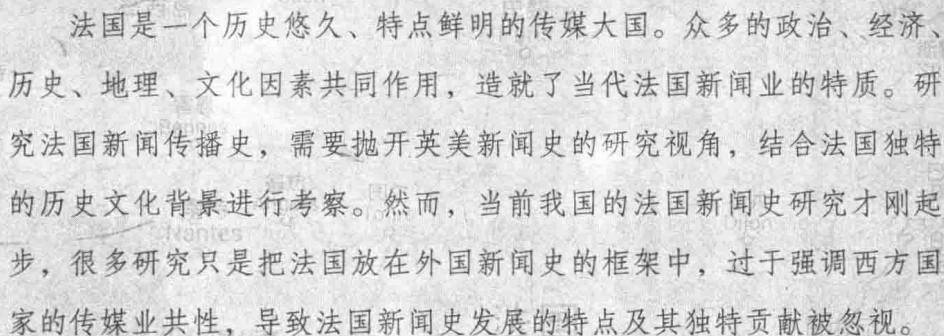 法国是一个历史悠久、特点鲜明的传媒大国。众多的政治、经济、
历史、地理、文化因素共同作用，造就了当代法国新闻业的特质。研
究法国新闻传播史，需要抛开英美新闻史的研究视角，结合法国独特
的历史文化背景进行考察。然而，当前我国的法国新闻史研究才刚起
步，很多研究只是把法国放在外国新闻史的框架中，过于强调西方国
家的传媒业共性，导致法国新闻史发展的特点及其独特贡献被忽视。
Nantes
Dijon